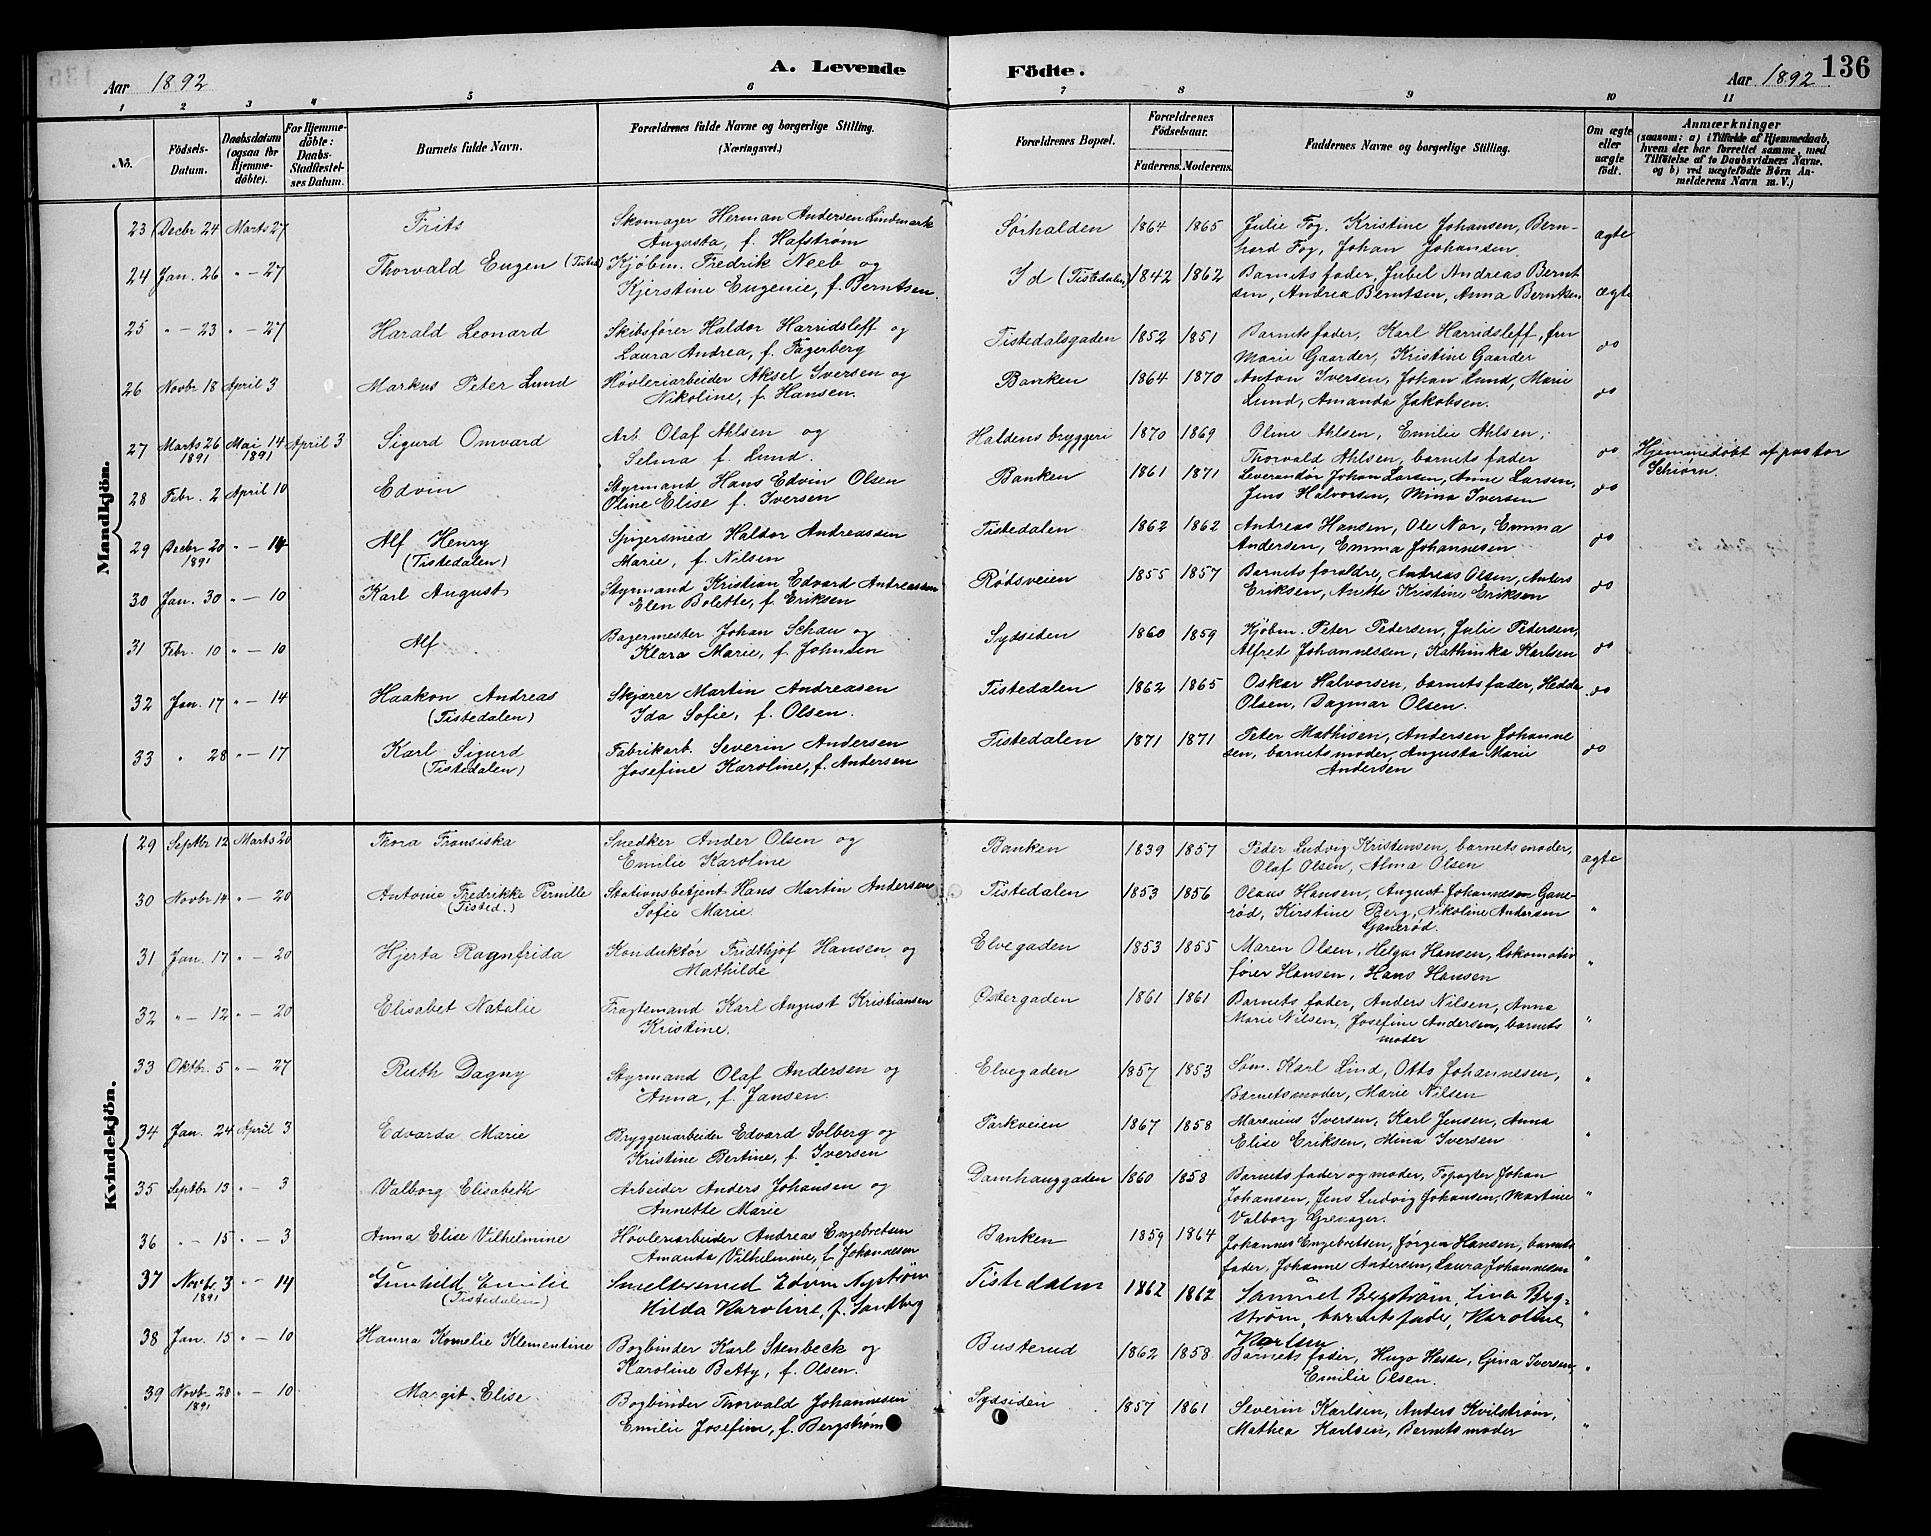 Aar 1892
A. Levende
Födte.
Aar 1892
136
1 2 3 4 5 6 7 8 9 10 11
No.
Födsels-Datum.
Daabsdatum (ogsaa for Hjemme-döbte).
For Hjemme-döbte: Daabs-Stadfæstel-ses Datum.
Barnets fulde Navn.
Forældrenes fulde Navne og borgerlige Stilling.
(Næringsvei.)
Forældrenes Bopæl.
Forældrenes Födselsaar.
Faderens. Moderens.
Faddernes Navne og borgerlige Stilling.
Om ægte eller uægte födt.
Anmærkninger
(saasom: a) i Tilfælde af Hjemmedaab, hvem der har forrettet samme, med Tilföielse af to Daabsvidners Navne, og b) ved uægtefödte Börn An-melderens Navn m. V.)
Mandkjön.
23 Decbr 24 Marts 27 Frits Skomager Herman Andersen Lindmark Sørhalden 1864 1865 Julie Fog, Kristine Johansen, Bern-
Augusta, f. Hafstrøm hard Fog, Johan Johansen ægte
24 Jan. 26 " — 27 Thorvald Eugen (Tisted) Kjøbm. Fredrik Neeb og Id (Tistedalen) 1842 1862 Barnets fader, Jubel Andreas Bernt
Kjerstine Eugenie, f. Berntsen. sen, Andrea Berntsen, Anna Berntsen ægte
25 " — 23 " — 27 Harald Leonard Skibsfører Haldor Harridsleff og Tistedalsgaden 1852 1851 Barnets fader, Karl Harridsleff, fru
Laura Andrea, f. Fagerberg Marie Gaarder, Kristine Gaarder do
26 Novbr 18 April 3 Markus Peter Lund Høvleriarbeider Aksel Iversen og Banken 1864 1870 Anton Iversen, Johan Lund, Marie
Nikoline, f. Hansen. Lund, Amanda Jakobsen. do
27 Marts 26 Mai 14 April 3 Sigurd Omvard Arb. Olaf Ahlsen og Haldens bryggeri 1870 1869 Oline Ahlsen, Emilie Ahlsen,
1891 1891 Selma f. Lund. Thorvald Ahlsen, barnets fader do Hjemmedøbt af pastor
Schiørn.
28 Febr. 2 April 10 Edvin Styrmand Hans Edvin Olsen Banken 1861 1871 Leverandør Johan Larsen, Anne Larsen,
Oline Elise f. Iversen Jens Halvorsen, Mina Iversen do
29 Decbr 20 " — 14 Alf Henry Spigersmed Haldor Andreassen Tistedalen 1862 1862 Andreas Hansen, Ole Nor, Emma
1891 (Tistedalen) Marie, f. Nilsen Andersen, Emma Johannesen do
30 Jan. 30 " — 10 Karl August Styrmand Kristian Edvard Andreassen Rødsveien 1855 1857 Barnets forældre, Andreas Olsen, Anders
Elen Bolette, f. Eriksen Eriksen, Anette Kristine Eriksen do
31 Febr. 10 " — 10 Alf Bagermester Johan Schau og Sydsiden 1860 1859 Kjøbm. Peter Pedersen, Julie Pedersen,
Klara Marie, f. Johnsen Alfred Johannessen, Kathinka Karlsen do
32 Jan. 17 " — 14 Haakon Andreas Skjærer Martin Andreasen Tistedalen 1862 1865 Oskar Halvorsen, barnets fader, Hedda
(Tistedalen) Ida Sofie, f. Olsen. Olsen, Dagmar Olsen. do
33 " 28 " — 17 Karl Sigurd Fabrikarb. Severin Andersen Tistedalen 1871 1871 Peter Mathisen, Andersen Johanne
(Tistedalen) Josefine Karoline, f. Andersen sen, barnets moder, Augusta Marie do
Andersen
Kvindekjön.
29 Septbr 12 Marts 20 Thora Fransiska Snedker Ander Olsen og Banken 1839 1857 Peder Ludvig Kristensen, barnets moder,
Emilie Karoline Olaf Olsen, Alma Olsen ægte
30 Novbr 14 " — 20 Antonie Fredrikke Pernille Stationsbetjent Hans Martin Andersen Tistedalen 1853 1856 Olaus Hansen, August Johannesen Gane-
(Tisted.) Sofie Marie. rød, Kirstine Berg, Nikoline Andersen "
Ganerød.
31 Jan. 17 " — 20 Hjerta Ragnfrida Konduktør Fridthjof Hansen og Elvegaden 1853 1855 Maren Olsen, Helga Hansen, Lokomotiv
Mathilde fører Hansen, Hans Hansen "
32 " — 12 " — 20 Elisabet Natalie Fragtemand Karl August Kristiansen Ostergaden 1861 1861 Barnets fader, Anders Nilsen, Anna
Kristine. Marie Nilsen, Josefine Andersen, barnets "
moder
33 Oktbr. 5 " — 27 Ruth Dagny Styrmand Olaf Andersen og Elvegaden 1857 1853 Søm. Karl Lind, Otto Johannesen, "
Anna, f. Jansen. Barnets moder, Marie Nilsen
34 Jan. 24 April 3 Edvarda Marie Bryggeriarbeider Edvard Solberg og Parkveien 1867 1858 Marenius Iversen, Karl Jensen, Anna
Kristine Bertine, f. Iversen Elise Eriksen, Mina Iversen "
35 Septbr 13 " — 3 Valborg Elisabeth Arbeider Anders Johansen og Damhauggaden 1860 1858 Barnets fader og moder, Johan
Annette Marie Johansen, Jens Ludvig Johansen, Martine "
Valborg Grenager.
36 " — 15 " — 3 Anna Elise Vilhelmine Høvleriarbeider Andreas Engebretsen Banken 1859 1864 Johannes Engebretsen, Jørgen Hansen, barnets
Amanda Vilhelmine, f. Johannesen fader, Johanne Andersen, Laura Johannesen "
37 Novbr. 3 " — 14 Gunhild Emilie Smeltesmed Edvin Nystrøm Tistedalen 1862 1862 Samuel Bergstrøm, Lina Berg-
1891 (Tistedalen) Hilda Karoline, f. Sandberg strøm, barnets fader, Karoline "
Karlsen
38 Jan. 15 " — 10 Hanna Kornelie Klementine Bogbinder Karl Stenbeck og Busterud 1862 1858 Barnets fader, Hugo Hesse, Gina Iversen,
Karoline Betty, f. Olsen. Emilie Olsen. "
39 Novbr. 28 " — 10 Margit Elise Bogbinder Thorvald Johannesen Sydsiden 1857 1861 Severin Karlsen, Anders Kvilstrøm,
1891 Emilie Josefine, f. Bergstrøm Mathea Karlsen, Barnets moder "